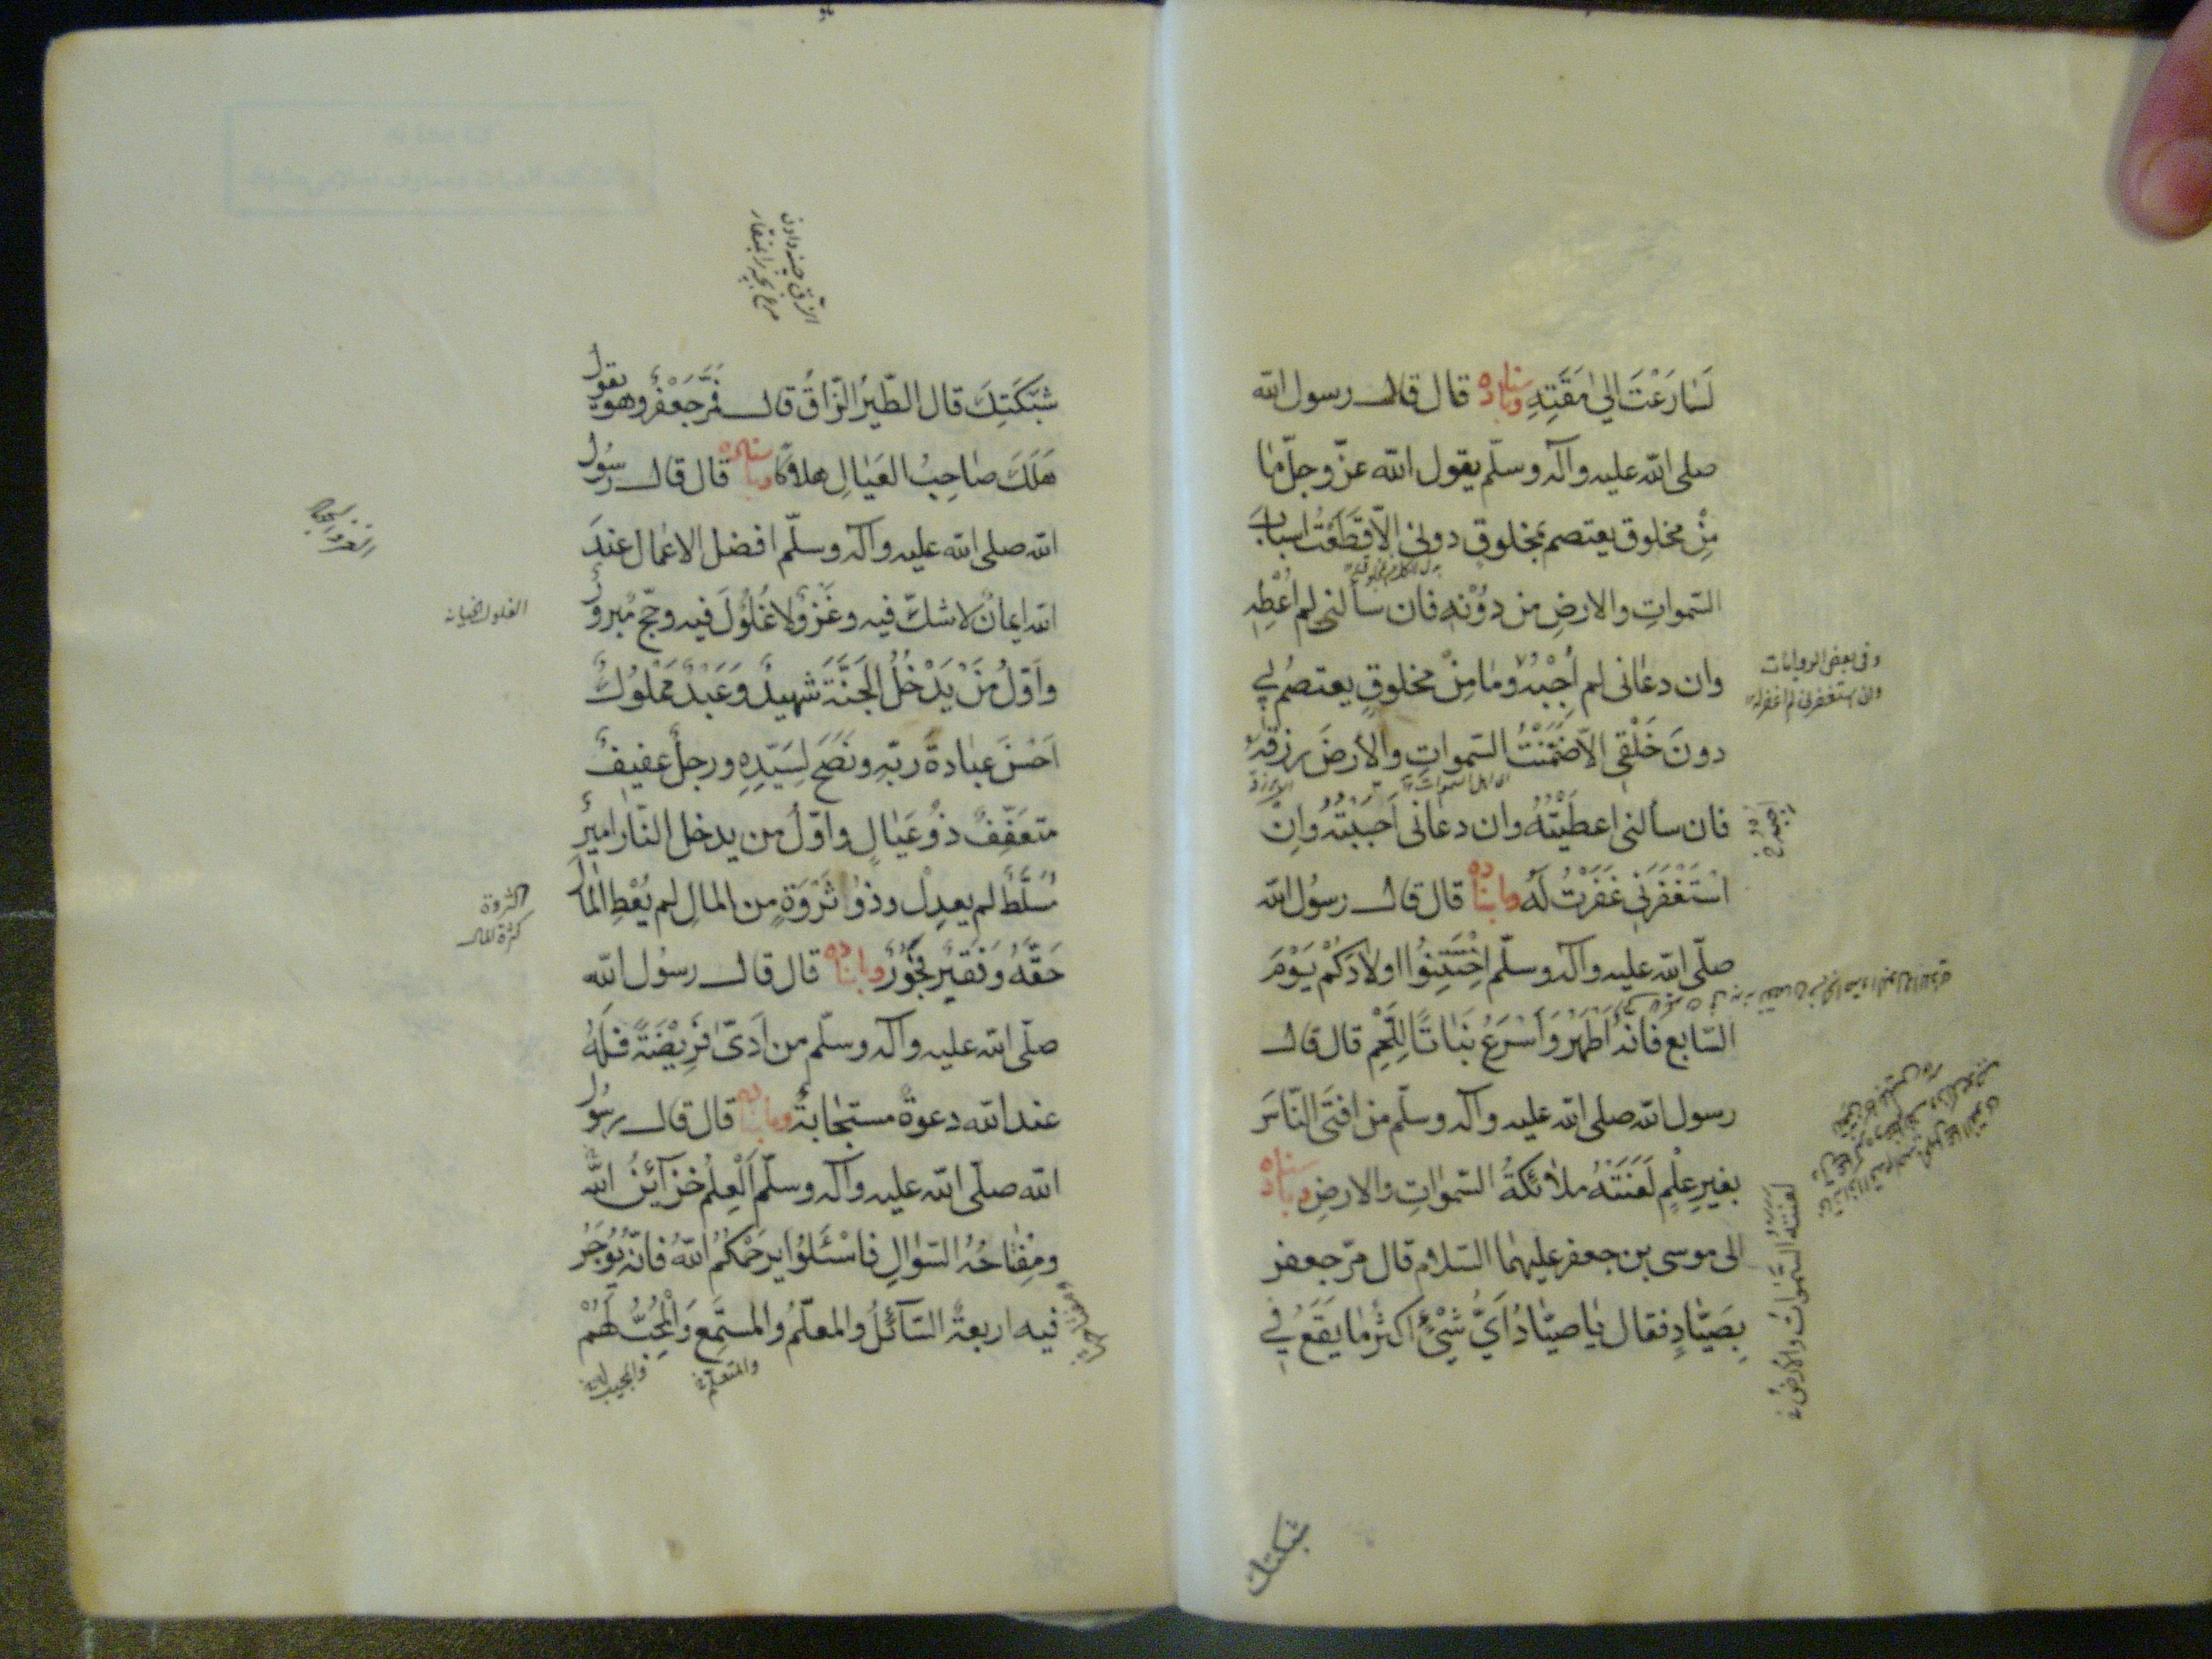 لَسٰارَعْتَ اِلىٰ مَقَتِهِ وباسناده قال قال رسول الله
صلى الله عليه وآله وسلّم يقول الله عزّ وجلّ مٰا
مِنْ مخلوق يعتصم بمخلوقٍ دونى اِلّا قَطَعْتُ اسبابَ
السّمواتِ والارضِ من دُوْنِهِ فان سألنى لم اُعْطِهِ
وان دعٰانى لم اُجِبْهُ ومٰا مِنْ مخلوقٍ يعتصمُ بى
وفى بعض الروايات
وان استغفرنى لم اغفر له
دونَ خَلْقى الّا ضَمَّنْتُ السّمواتِ والارضَ برزقِهِ
فان سألنى اعطَيْتُهُ وان دعانى اَجَبْتُهُ وانِ
اسْتَغْفَرَنِى غَفَرْتُ لَهُ وباسناده قال قال رسُول الله
صلّى الله عليه وآله وسلّم اِخْتَتِنُوا اولادَكُمْ يَوْمَ
السّابع فانّه اَطْهَرُ وَاَسْرَعُ نَبٰاتًا لِلَّحْمِ قال قال
رسول الله صلى الله عليه وآله وسلّم من افتَى النّاسَ
بغيرِ عِلْمٍ لَعَنَتْهُ ملائكةُ السّمٰواتِ والارضِ وباسناده
لعنته السّموات والارض
الى موسى بن جعفر عليهما السّلام قال مرّ جعفر
بِصَيّٰادٍ فقال يٰا صيّٰادُ اَىُّ شَيْءٍ اكثرُ مٰا يَقَعُ فِى
شبكتك
الزّق چينه دادن
مرغ بچه را بمنقار
شَبَكَتِكَ قال الطّيرُ الزّاقُّ قال فمَرَّ جَعْفرٌ وهو يقول
هَلَكَ صٰاحِبُ العَيٰالِ هلاكًا وباسناده قال قال رسُول
الله صلى الله عليه وآله وسلّم افضل الاعمٰال عندَ
الله ايمانٌ لا شكّ فيه وغَزْوٌ لا غُلُوْلَ فيه وحجّ مَبرورٌ
الغلول الخيانة
واَوّلُ مَنْ يَدْخُلُ الجَنَّةَ شَهِيدٌ وَعَبْدٌ مَمْلُوْكٌ
اَحْسَنَ عبٰادةَ ربّهِ ونَصَحَ لِسَيّدِهِ ورجلٌ عفيفٌ
متعَفِّفٌ ذُو عَيٰالٍ واوّلُ من يدخل النّار اميرٌ
مُسَلَّطٌ لم يعدِلْ وذُو ثَرْوَةٍ من المالِ لم يُعْطِ المٰال
الثروة
كثرة المال
حَقَّهُ وَفقيرٌ فَخُوْرٌ وباسناده قال قال رسُول الله
صلّى الله عليه وآله وسلّم من اَدّىٰ فَرِيْضَةً فَلَهُ
عند الله دعوةٌ مستجٰابةٌ وباسناده قال قال رسُول
الله صلّى الله عليه وآله وسلّم اَلْعِلْمُ خزآئنُ الله
ومِفْتٰاحُهُ السّوٰالِ فاسْئَلوُا يرحَمُكمُ اللّهُ فانّه يُوْجَرُ
فيه اربعةٌ السّآئلُ والمعلّمُ والمستمِع وَالْمُحِبُّ لَهُمْ
والمتعلّم
والمجيب له